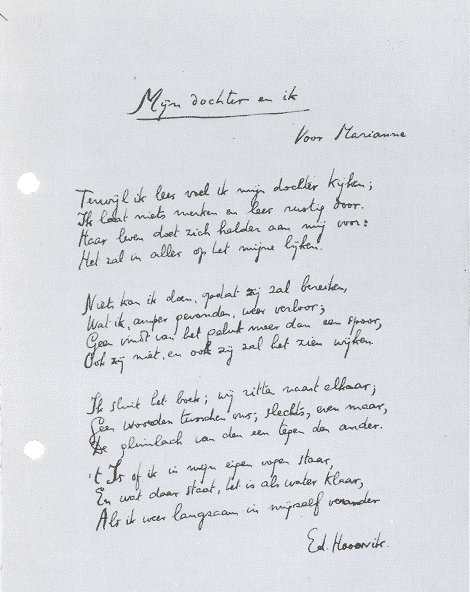 Mijn dochter en ik
Voor Marianne
Terwijl ik lees voel ik mijn dochter kijken;
Ik laat niets merken en lees rustig door.
Haar leven doet zich helder aan mij voor:
Het zal in alles op het mijne lijken.
Niets kan ik doen, opdat zij zal bereiken,
Wat ik, amper gevonden, weer verloor;
Geen vindt van het geluk meer dan een spoor,
Ook zij niet, en ook zij zal het zien wijken.
Ik sluit het boek; wij zitten naast elkaar;
Geen woorden tusschen ons; slechts, even maar,
De glimlach van den een tegen den ander.
't Is of ik in mijn eigen oogen staar,
En wat daar staat, het is als water klaar,
Als ik weer langzaam in mijzelf verander
Ed. Hoornik.